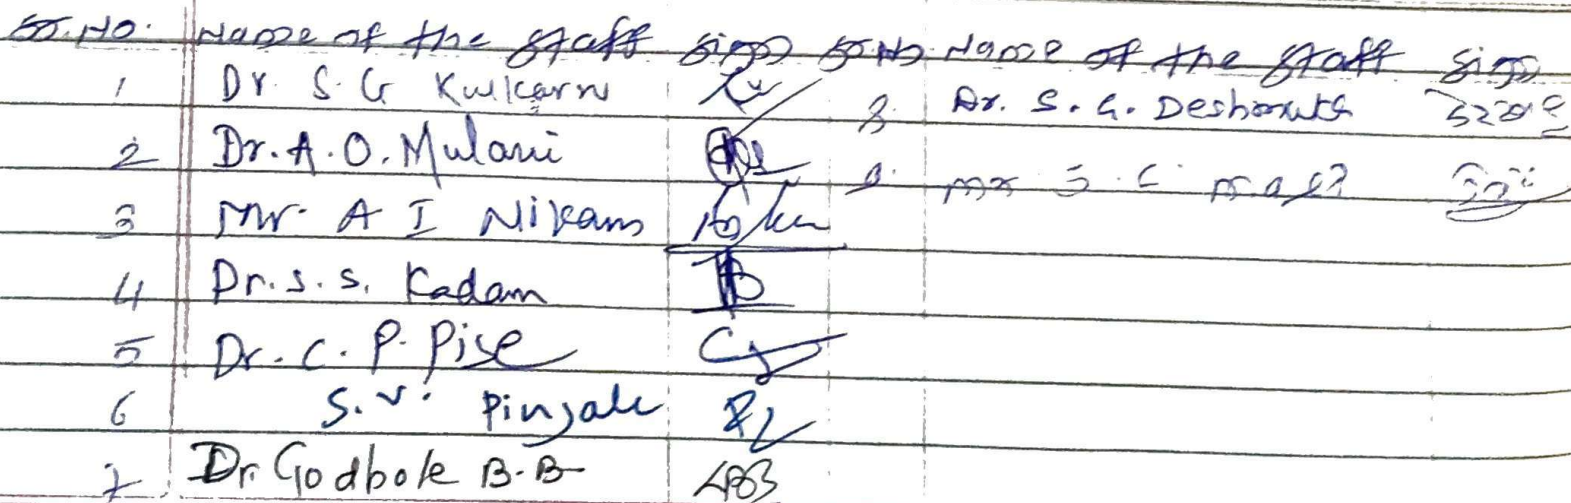 Sr.No. Name of the staff Sign Sr.No. Name of the staff Sign
1 Dr. S. G Kulkarni
8. Dr. S. G. Deshmukh
2 Dr. A. O. Mulani
9. Mr S. C.
3 Mr. A I Nikam
4 Dr. S. S. Kadam
5 Dr. C. P. Pise
6 S. V. Pingale
7 Dr. Godbole B. B